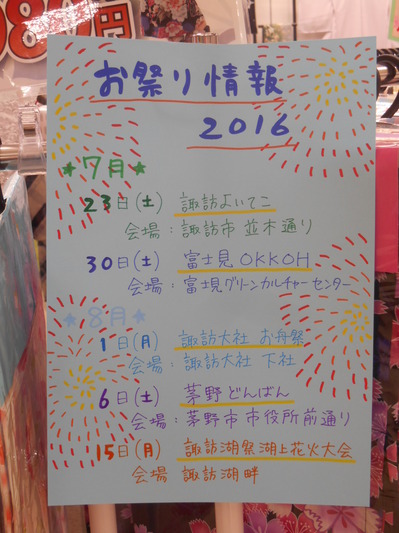 お祭り情報
2016
★7月★
23日(土) 諏訪よいてこ
会場:諏訪市 並木通り
30日(土) 富士見OKKOH
会場:富士見グリーンカルチャーセンター
★8月★
1日(月) 諏訪大社 お舟祭
会場:諏訪大社 下社
6日(土) 茅野どんばん
会場:茅野市市役所前通り
15日(月) 諏訪湖祭湖上花火大会
会場 諏訪湖畔